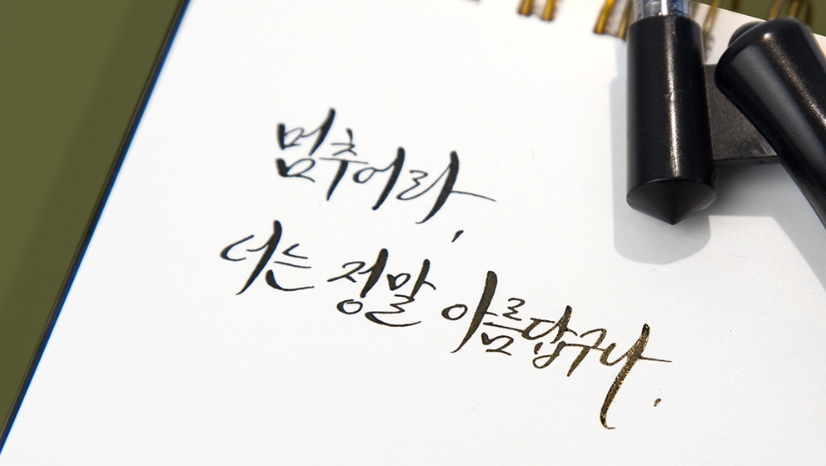 멈추어라,
너는 정말 아름답구나.